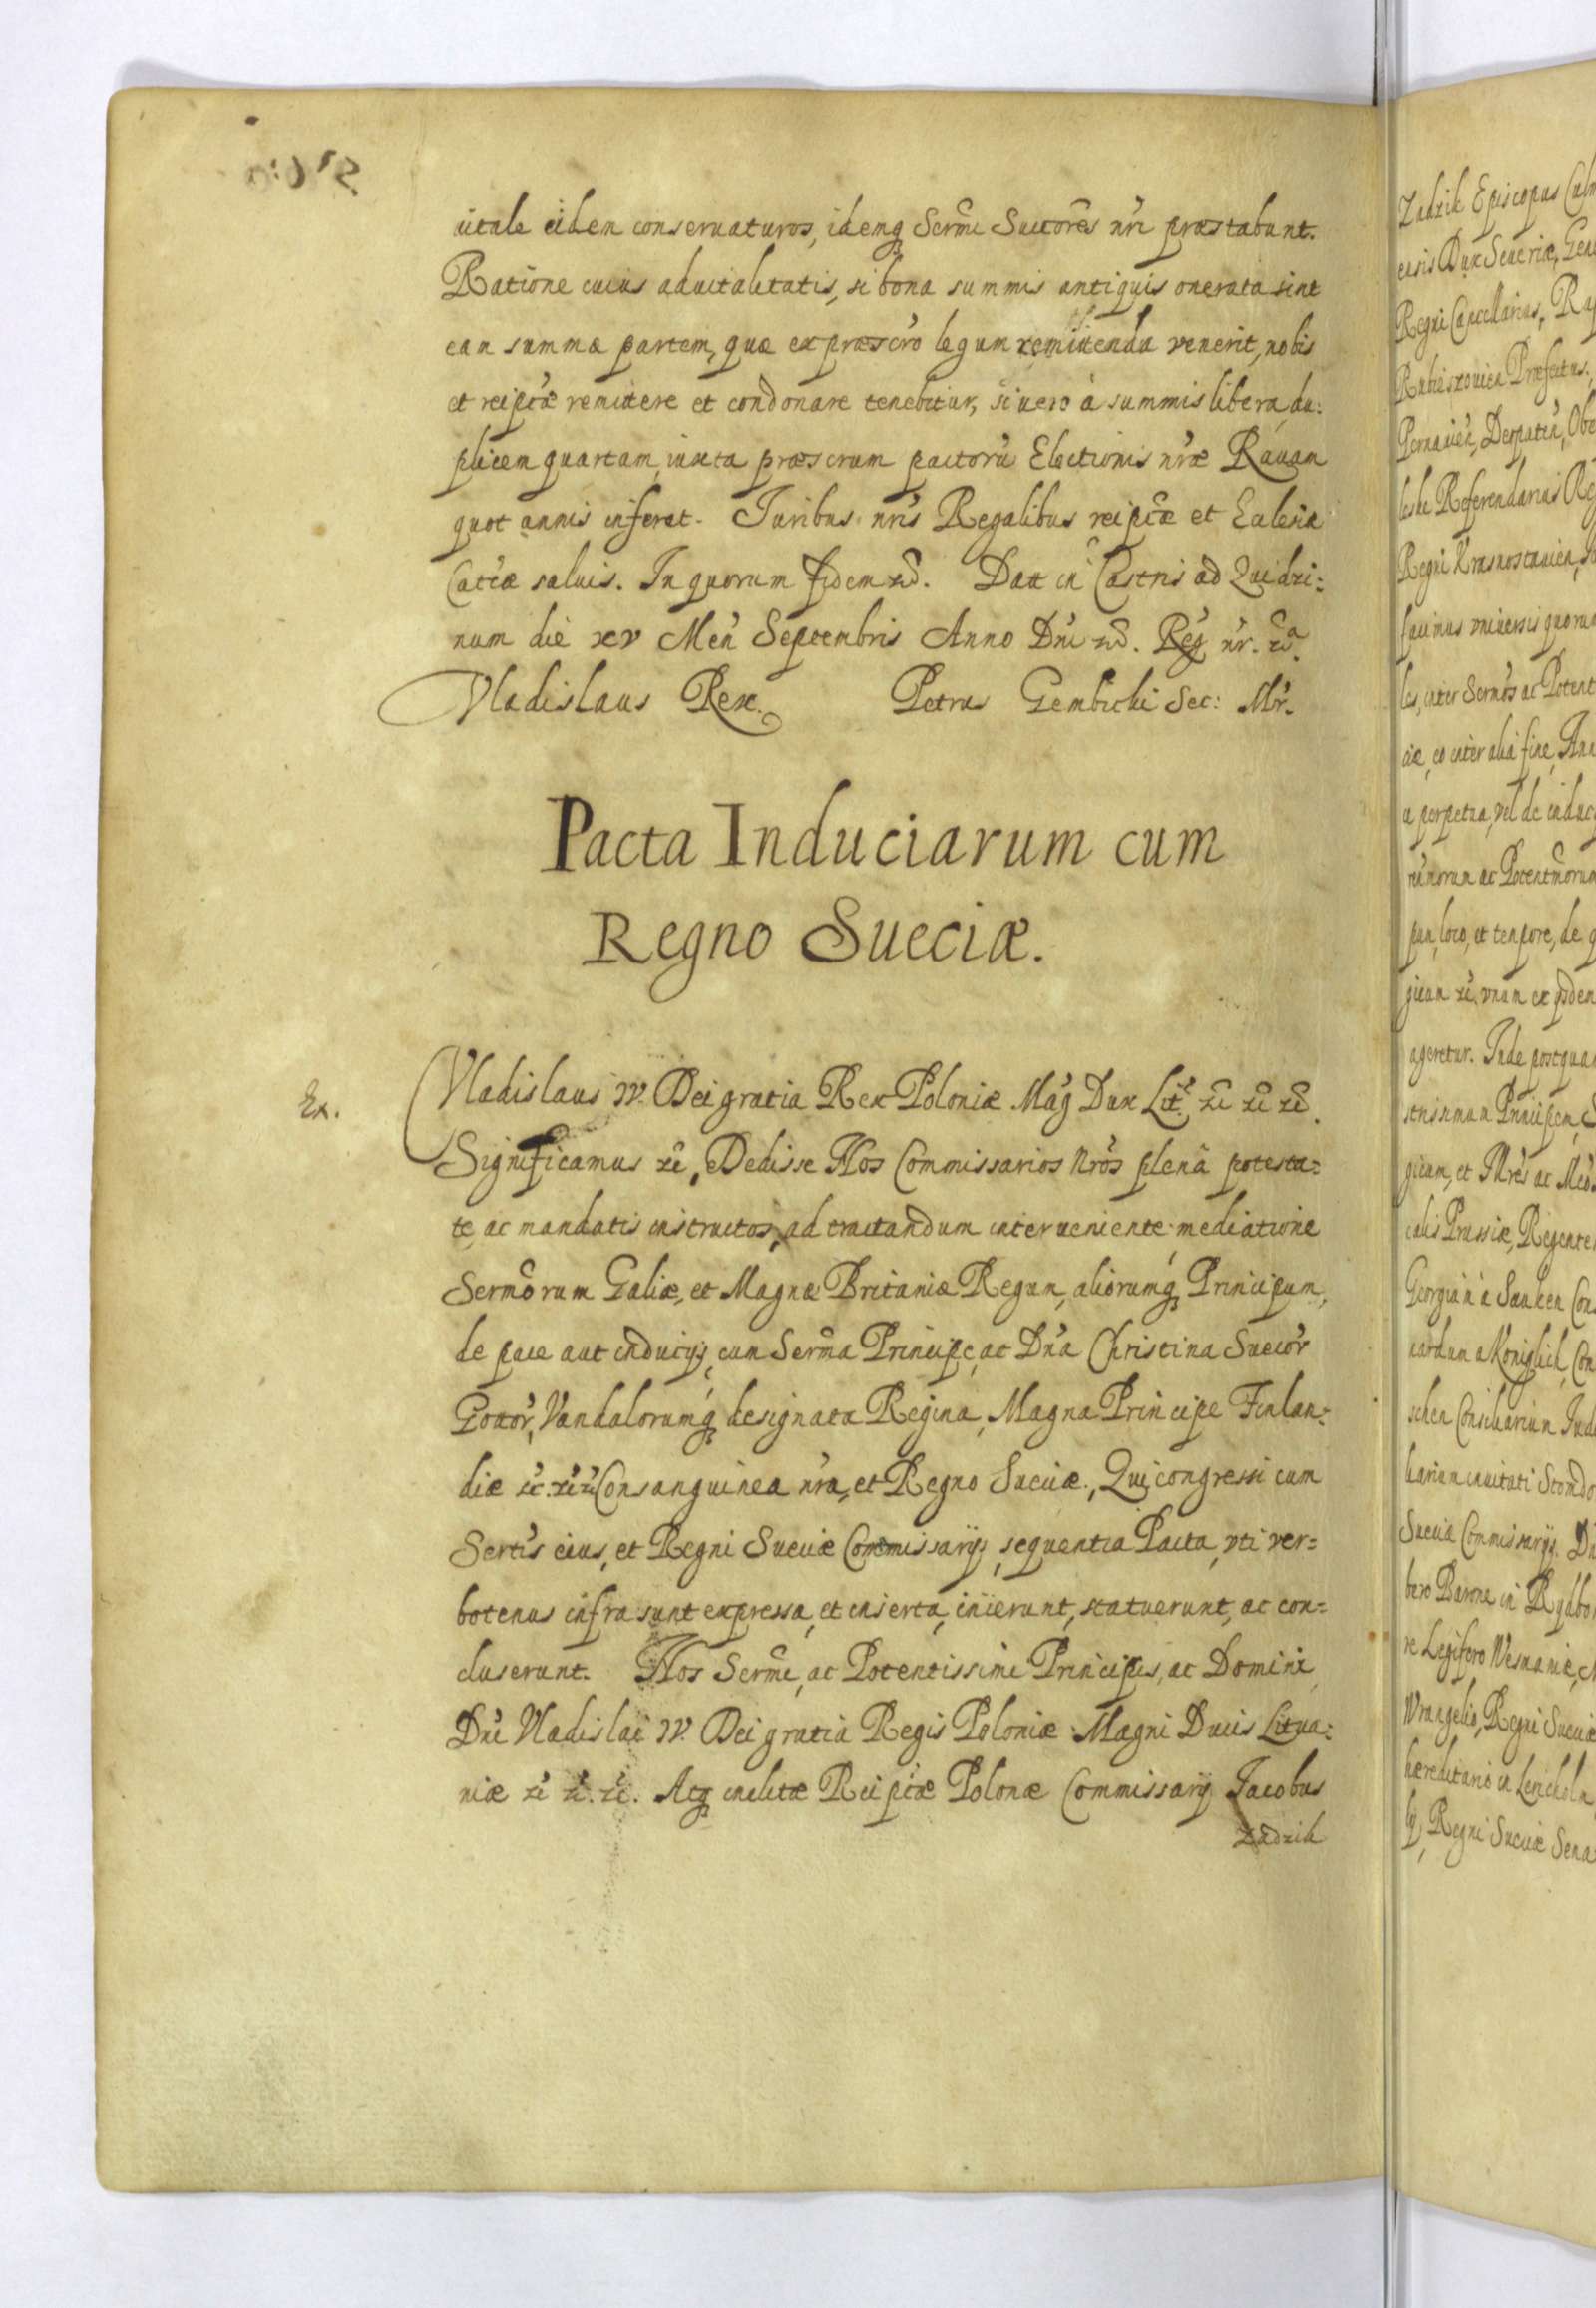 uitale eidem conseruaturos, idemq Sermi Succores nri præstabunt.
Ratione cuius aduitalitatis, si bona summis antiquis onerata sint
eam summæ partem, quæ ex præscro legum remittenda venerit, nobis
et reipcæ remittere et condonare tenebitur, si uero à summis libera, du:
plicem quartam, iuxta præscrum pactorũ Electionis nræ Rauam
quot annis inferet. Iuribus nris Regalibus reipcæ et Ecclesiæ
Catcæ saluis. In quorum fidem &c. Datt in Castris ad Quidzi:
num die xv Men Septembris Anno Dni &c. Reg nr. &a.
Vladislaus Rex. Petrus Gembicki Sec: Mr.
Pacta Induciarum cum
Regno Sueciæ.
Ex.
Vladislaus IV. Dei gratia Rex Poloniæ Mag Dux Lit. &c &c &c.
Significamus &c, Dedisse Nos Commissarios Nros plenâ potesta:
te, ac mandatis instructos, ad tractandum interueniente mediatione
Sermorum Galiæ, et Magnæ Britaniæ Regum, aliorumq Principum,
de pace aut inducijs, cum Serma Principe, ac Dna Christina Suecor
Gottor, Vandalorumq designata Regina, Magna Principe Finlan:
diæ &c. &c &c Consanguinea nra, et Regno Sueciæ., Qui congressi cum
Sertis eius, et Regni Sueciæ Commissarijs, sequentia Pacta, vti ver:
botenus infra sunt expressa, et inserta, inierunt, statuerunt, ac con:
cluserunt. Nos Sermi, ac Potentissimi Principis, ac Domini,
Dni Vladislai IV. Dei gratia Regis Poloniæ Magni Ducis Litua:
niæ &c &c. &c. Atq inclitæ Reipcæ Polonæ Commissarij Iacobus
Zadzik
Zadzik Episcopus Culm
ensis Dux Seueriæ, Gen
Regni Cancellarius, Ra
Rubieszouien Præfectus.
Pernauien, Derpaten, Obe
leski Referendarius Reg
Regni Krasnostauien,
facimus vniuersis quorum
les, inter Sermos ac Potent
ciæ, eo inter alia fine, Ann
a perpetua, vel de induc
renorum ac Potentmorum
pan, loco, et tempore, de q
giam &c. vnam ex pdem
ageretur. Inde postquam
strisimum Principem, S
gicum, et Illres ac
calis Prussiæ, Regente
Georgiũ à Sauken Con
nardum a Königlich, Con
schen Consiliarium Iudi
liarium ciuitati
Sueciæ Commissarijs. Di
bero Barone in Rydbo
re Legifero Wesmaniæ,
Wrangelio, Regni Sueciæ
hæreditario in
ly, Regni Sueciæ Sena